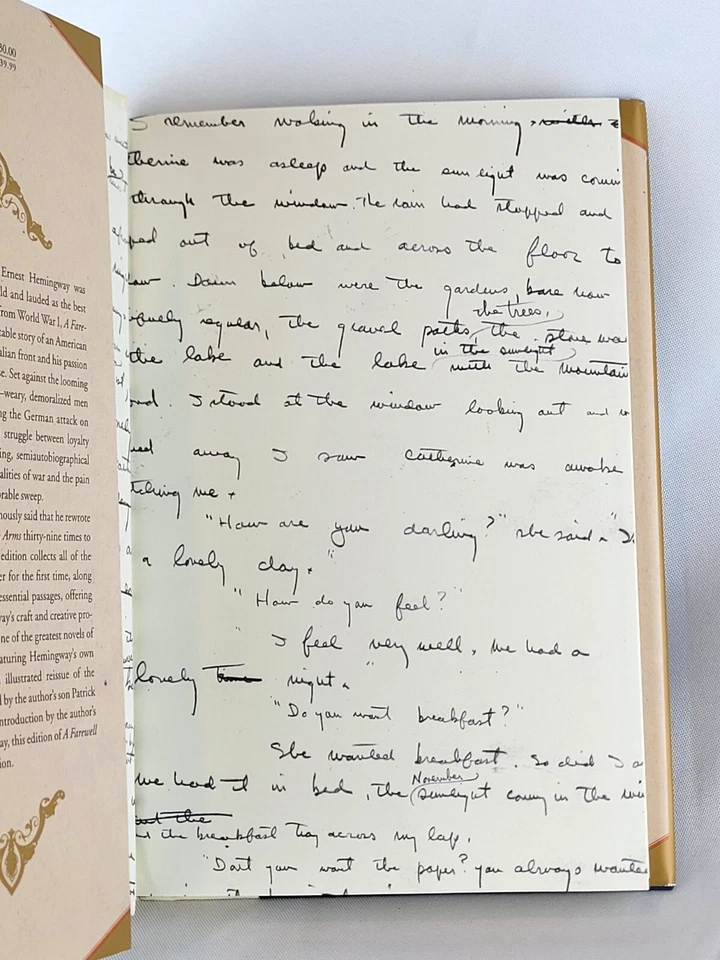 30.00
39.99
Ernest Hemingway was
ld and lauded as the best
from World War I, A Fare-
table story of an American
alian front and his passion
se. Set against the looming
-weary, demoralized men
ng the German attack on
struggle between loyalty
ing, semiautobiographical
alities of war and the pain
orable sweep.
nously said that he rewrote
Arms thirty-nine times to
edition collects all of the
er for the first time, along
essential passages, offering
way's craft and creative pro-
ne of the greatest novels of
aturing Hemingway's own
illustrated reissue of the
d by the author's son Patrick
ntroduction by the author's
ay, this edition of A Farewell
ion.
I remember waking in the morning,
therine was asleep and the sunlight was comin
through the window. The rain had stopped and
ped out of bed and across the floor to
dow. Down below were the gardens, bare now
the trees,
regular, the gravel paths, the stone wa
in the sunlight
the lake and the lake with the mountain
ond. I stood at the window looking out and w
ned away I saw Catherine was awake
tching me.
"How are you darling?" she said.
a lovely day."
"How do you feel?"
I feel very well. We had a
lovely time night.
"Do you want breakfast?"
She wanted breakfast. So did I a
November
we had it in bed, the sunlight coming in the win
out the
the breakfast tray across my lap.
"Dont you want the paper? you always wanted